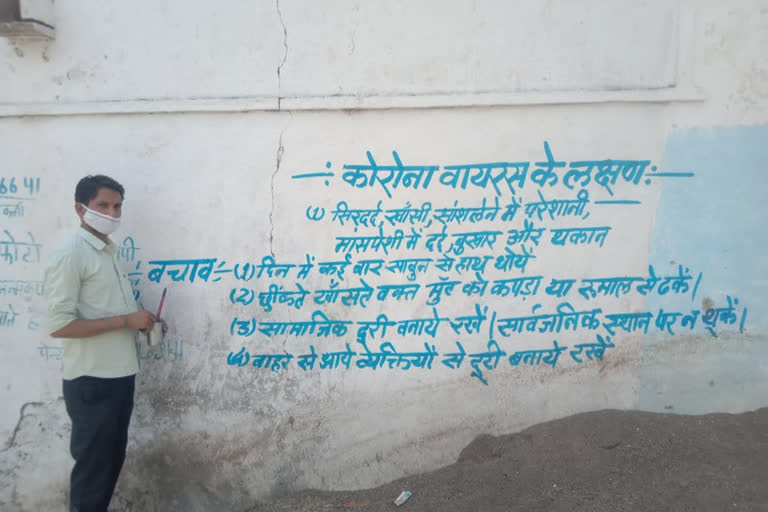 -:- कोरोना वायरस के लक्षण -:-
(1) सिरदर्द, खाँसी, सांश लेने में परेशानी,
मांसपेशी में दर्द, बुखार और थकान
बचाव -:- (1) दिन में कई बार साबुन से हाथ धोयें
(2) छींकते खाँसते वक्त मुंह को कपड़ा या रुमाल से ढकें।
(3) सामाजिक दूरी बनाये रखें। सार्वजनिक स्थान पर न थूकें।
(4) बाहर से आये व्यक्तियों से दूरी बनाये रखें
6641
फोटो